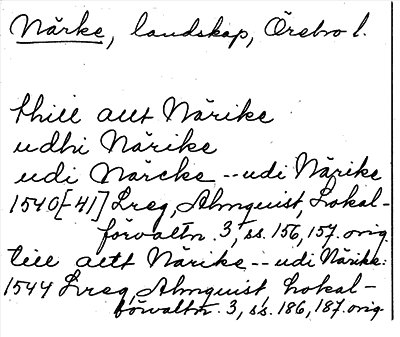 Närke, landskap, Örebro l.
thill allt Närike
udhi Närike
udi Närcke -- udi Närike
1540[-41] Lreg, Almquist, Lokal-
förvaltn. 3, ss. 156, 157. orig.
till altt Närike -- udi Närike:
1544 Lreg, Almquist, Lokal-
förvaltn. 3, ss. 186, 187. orig.